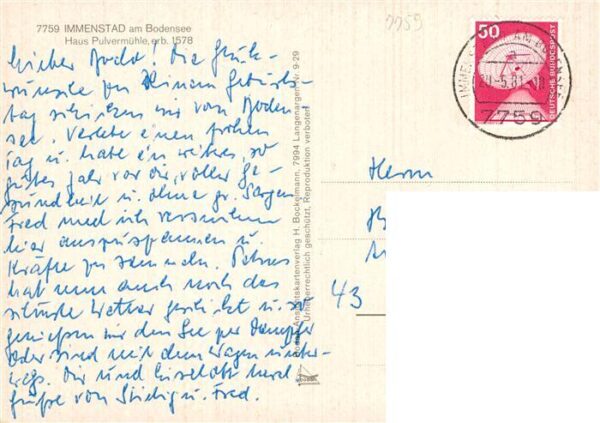 7759 IMMENSTAD am Bodensee
Haus Pulvermühle, erb. 1578
7759
Lieber Jochl! Die Glück-
wünsche zu Deinem Geburts-
tag schicken wir vom Boden
see. Verlebe einen frohen
Tag u. habe ein weiteres, so
gutes Jahr vor dir, voller Ge-
sundheit u. ohne gr. Sorgen
Fred und ich versuchen
hier auszuspannen u.
Kräfte zu sammeln. Petrus
hat nun auch noch das
schönste Wetter geschickt u. so
geniessen wir den See per Dampfer
oder sind mit dem Wagen unter-
wegs. Dir und Liselotte herzl
Grüsse von u. Fred.
Bodan-Ansichtskartenverlag H. Bockelmann, 7994 Langenargen Nr. 9-29
Urheberrechtlich geschützt, Reproduktion verboten
50
DEUTSCHE BUNDESPOST
7759
Herrn
43